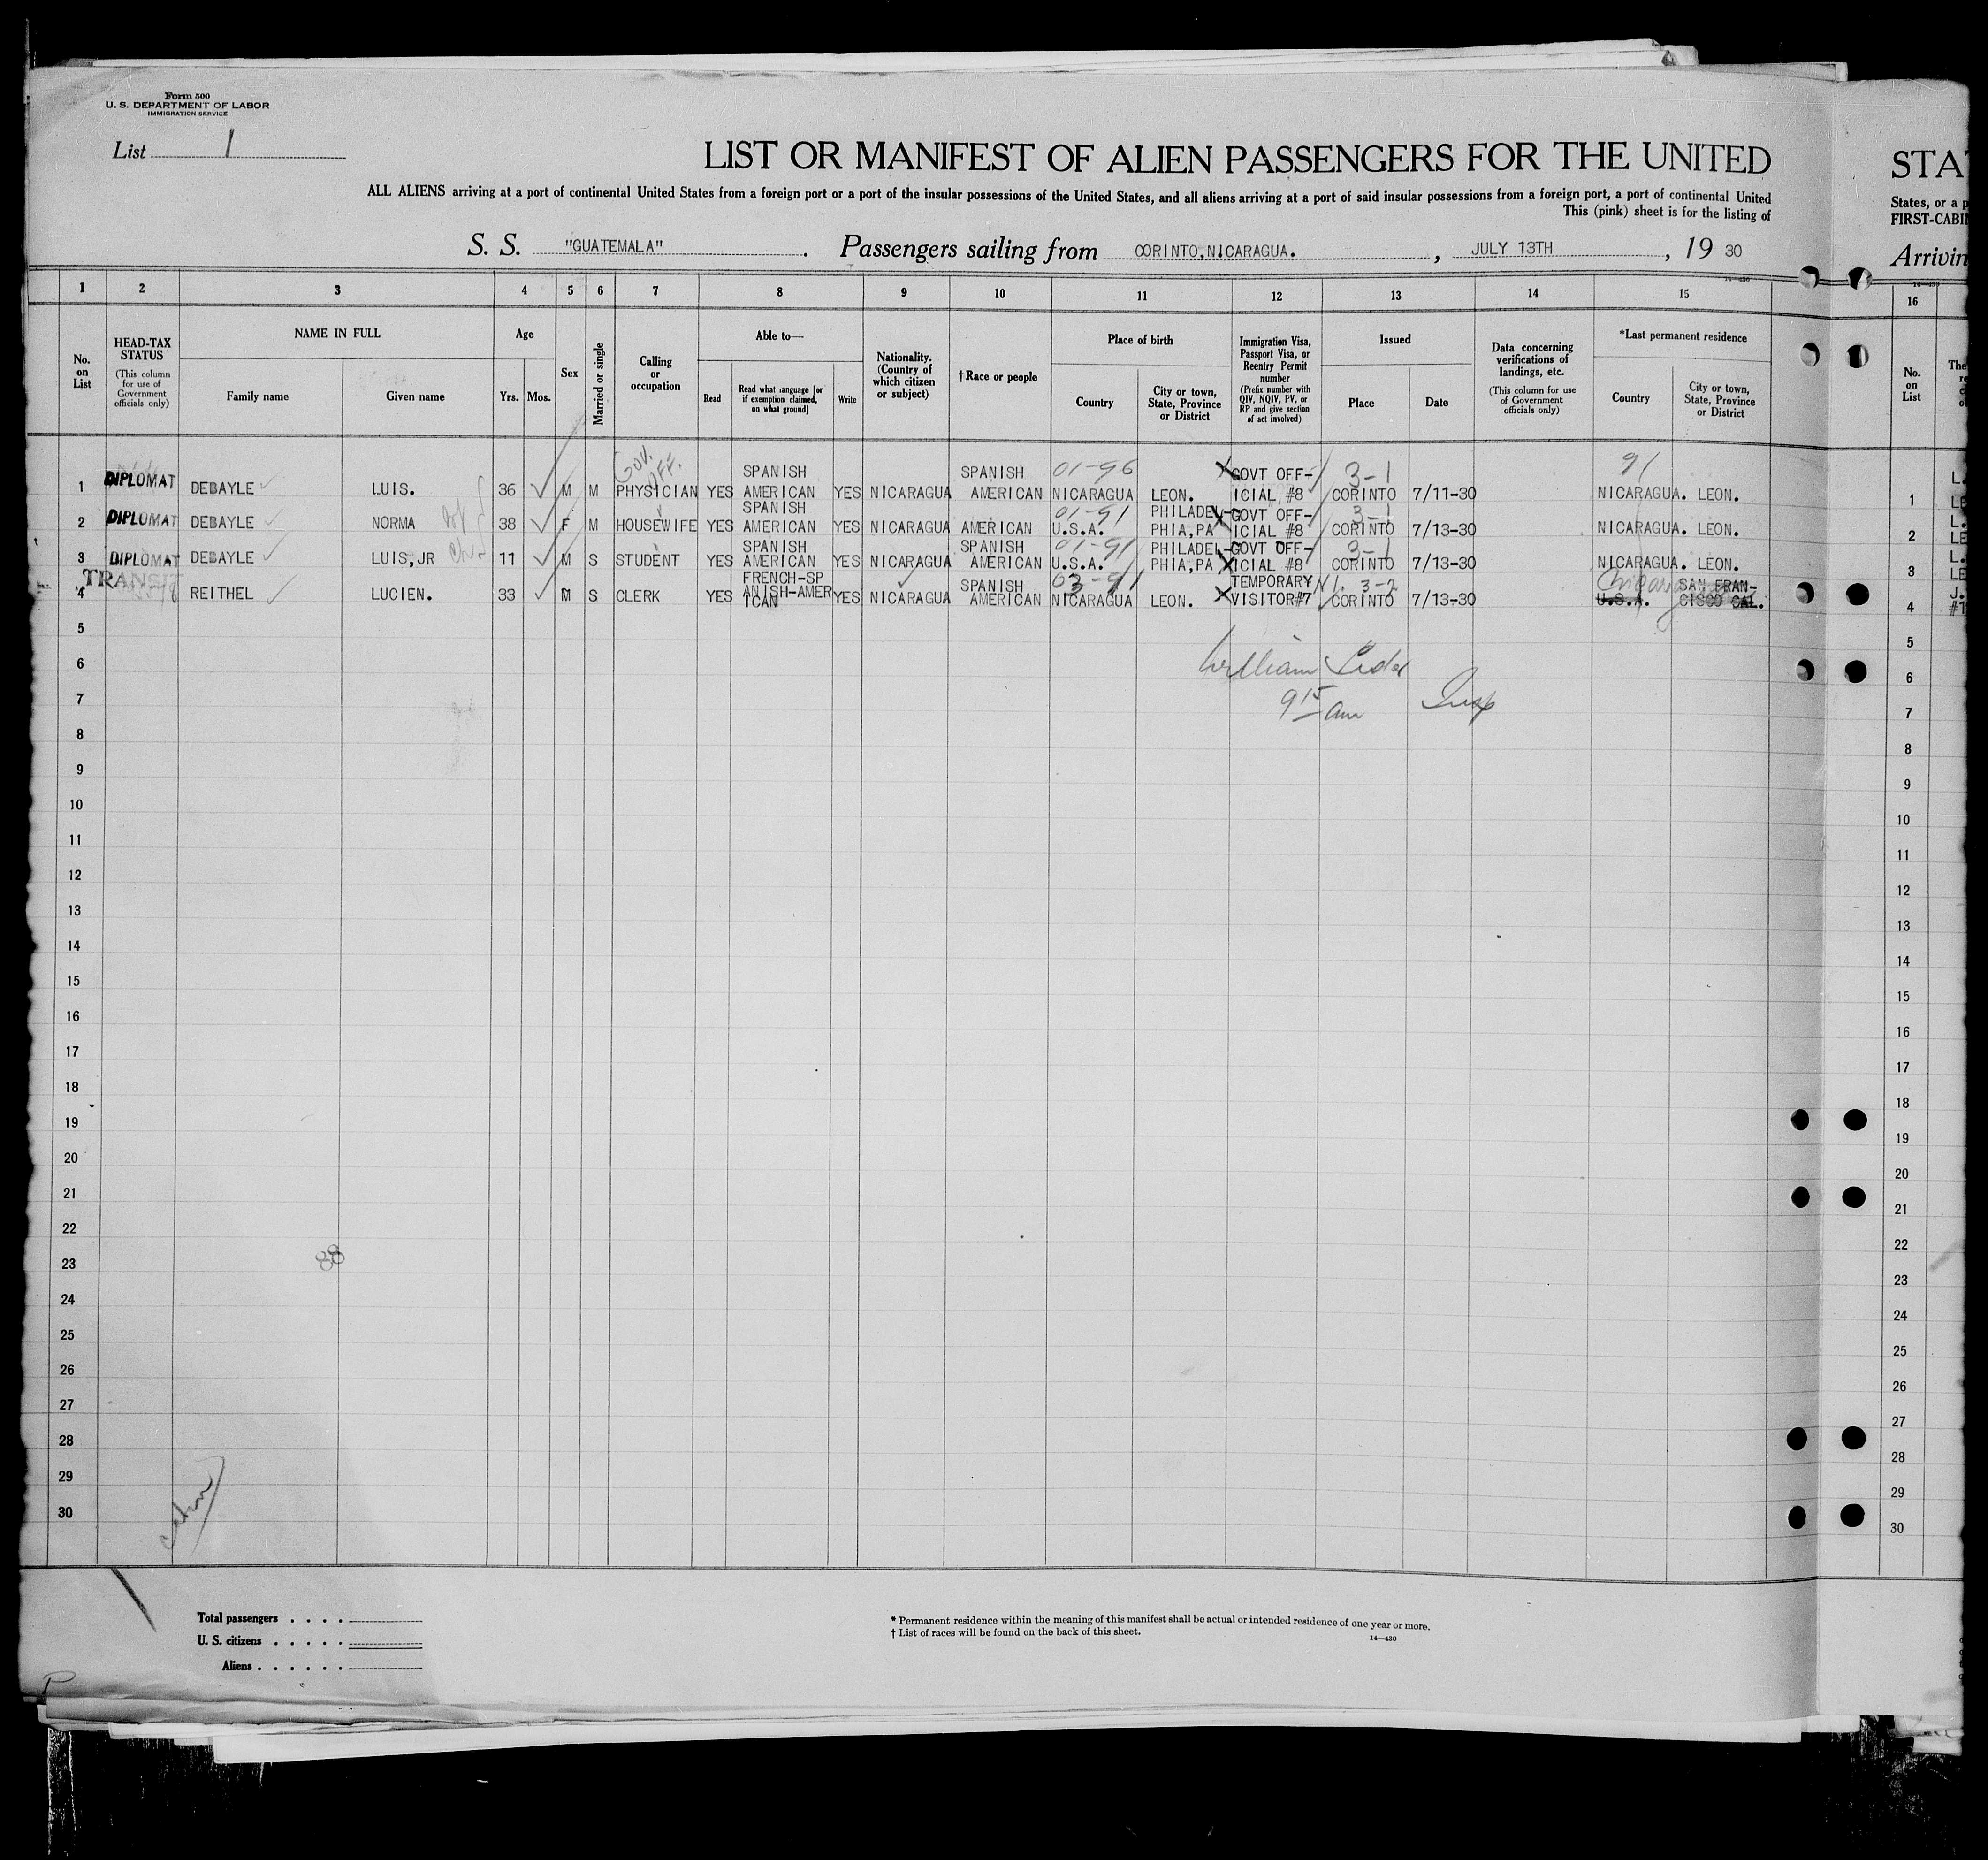 Form 500
U. S. DEPARTMENT OF LABOR
IMMIGRATION SERVICE
List 1
LIST OR MANIFEST OF ALIEN PASSENGERS FOR THE UNITED
STA
ALL ALIENS arriving at a port of continental United States from a foreign port or a port of the insular possessions of the United States, and all aliens arriving at a port of said insular possessions from a foreign port, a port of continental United
States, or a p
This (pink) sheet is for the listing of
FIRST-CABI
S. S. "GUATEMALA". Passengers sailing from CORINTO,NICARAGUA. , JULY 13TH , 19 30
Arrivin
1 2 3 4 5 6 7 8 9 10 11 12 13 14 15 16
No. on List
HEAD-TAX STATUS (This column for use of Government officials only)
NAME IN FULL
Family name Given name
Age
Yrs. Mos.
Sex
Married or single
Calling or occupation
Able to—
Read
Read what language [or if exemption claimed, on what ground]
Write
Nationality. (Country of which citizen or subject)
†Race or people
Place of birth
Country
City or town, State, Province or District
Immigration Visa, Passport Visa, or Reentry Permit number (Prefix number with QIV, NQIV, PV, or RP and give section of act involved)
Issued
Place Date
Data concerning verifications of landings, etc. (This column for use of Government officials only)
*Last permanent residence
Country
City or town, State, Province or District
No. on List
1 DIPLOMAT DEBAYLE LUIS. 36 M M Gov. Off. PHYSICIAN YES SPANISH AMERICAN YES NICARAGUA SPANISH AMERICAN 01-96 NICARAGUA LEON. GOVT OFF-ICIAL #8 3-1 CORINTO 7/11-30 91 NICARAGUA. LEON. 1
2 DIPLOMAT DEBAYLE NORMA 38 F M HOUSEWIFE YES SPANISH AMERICAN YES NICARAGUA AMERICAN 01-91 U.S.A. PHILADEL-PHIA,PA GOVT OFF-ICIAL #8 3-1 CORINTO 7/13-30 NICARAGUA. LEON. 2
3 DIPLOMAT DEBAYLE LUIS,JR 11 M S STUDENT YES SPANISH AMERICAN YES NICARAGUA SPANISH AMERICAN 01-91 U.S.A. PHILADEL-PHIA,PA GOVT OFF-ICIAL #8 3-1 CORINTO 7/13-30 NICARAGUA. LEON. 3
4 TRANSIT REITHEL LUCIEN. 33 M S CLERK YES FRENCH-SPANISH-AMERICAN YES NICARAGUA SPANISH AMERICAN 03-91 NICARAGUA LEON. TEMPORARY VISITOR#7 3-2 CORINTO 7/13-30 Nicaragua U.S.A. SAN FRAN-CISCO CAL. 4
5 5
6 6
William
7 7
9 15 am Insp
8 8
9 9
10 10
11 11
12 12
13 13
14 14
15 15
16 16
17 17
18 18
19 19
20 20
21 21
22 22
23 38 23
24 24
25 25
26 26
27 27
28 28
29 29
30 30
Total passengers . . . .
U. S. citizens . . . . .
Aliens . . . . . .
* Permanent residence within the meaning of this manifest shall be actual or intended residence of one year or more.
† List of races will be found on the back of this sheet.
14—430